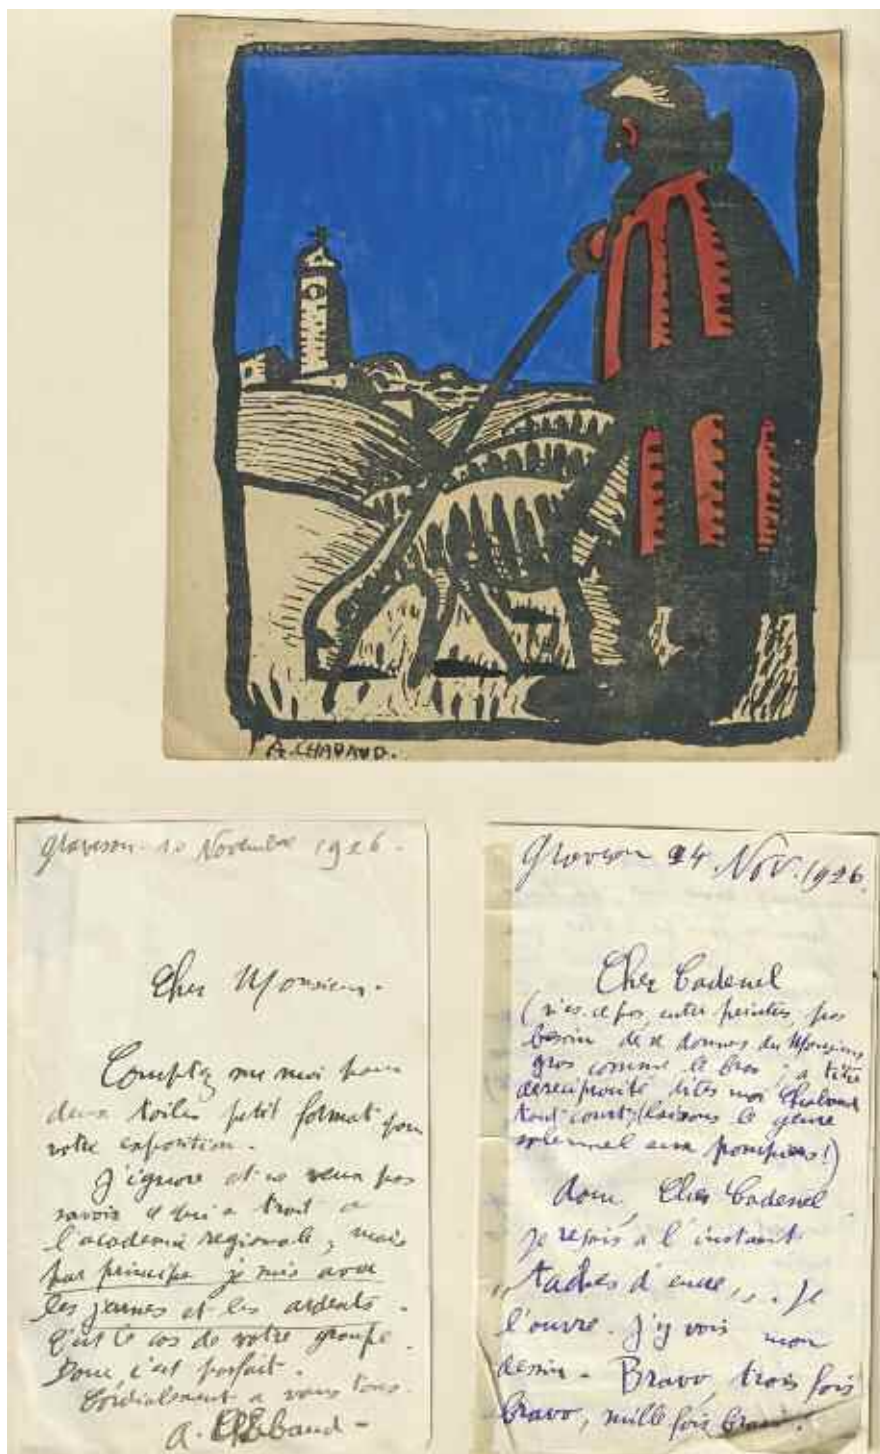 A. CHABAUD.
Graveson 10 Novembre 1926.
Cher Monsieur.
Comptez sur moi pour
deux toiles petit format pour
votre exposition.
J'ignore et ne veux pas
savoir ce qui a trait à
l'academie regionale, mais
par principe je suis avec
les jeunes et les ardents.
C'est le cas de votre groupe.
Donc, c'est parfait.
Cordialement a vous tous.
A. Chabaud
Graveson 24 Nov. 1926.
Cher Cadenel
(n'est ce pas, entre peintres pas
besoin de se donner du Monsieur
gros comme le bras; a titre
de reciprocité dites moi Chabaud
tout court; laissons le genre
solennel aux pompiers!)
donc, Cher Cadenel
je reçois à l'instant
"taches d'encre". Je
l'ouvre. J'y vois mon
dessin. Bravo, trois fois
bravo, mille fois bravo!